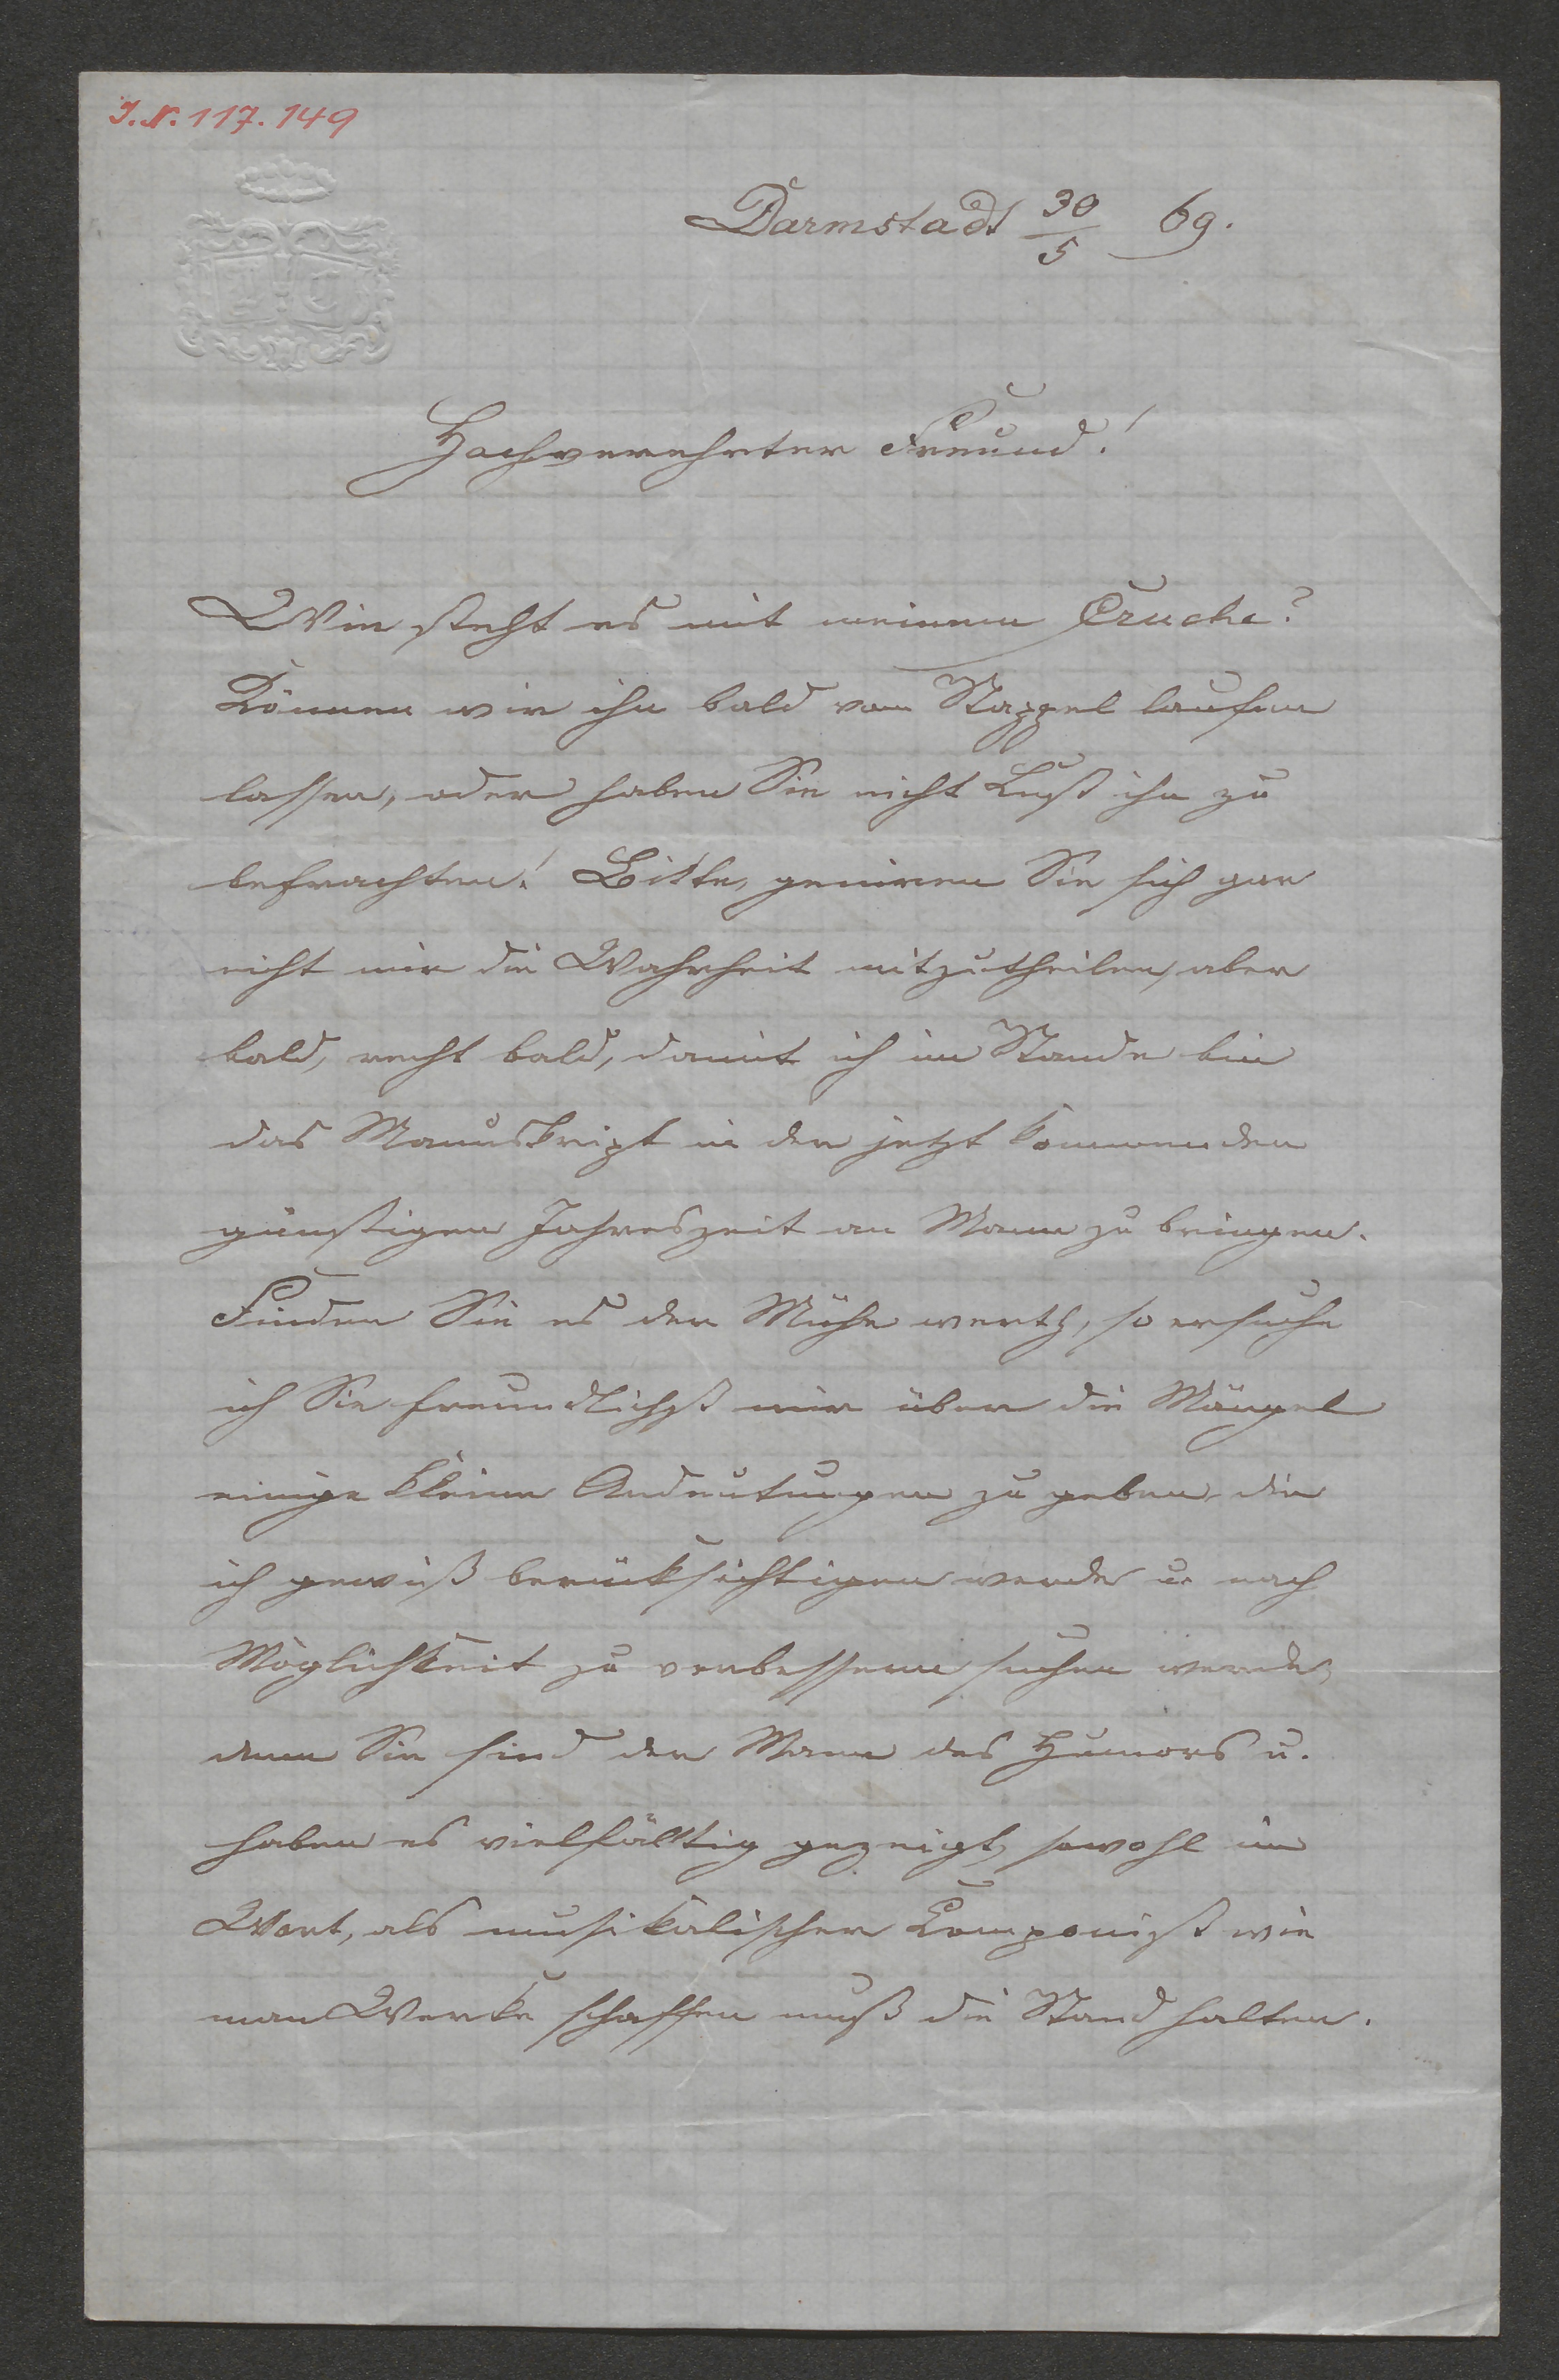 I.N. 117.149
Darmstadt 30/5 69.
Hochverehrter Freund!
Wie steht es mit meinem Cruche?
Können wir ihn bald vom Stappel laufen
lassen, oder haben Sie nicht Lust ihn zu
befrachten! Bitte, geniren Sie sich gar
nicht mir die Wahrheit mitzutheilen, aber
bald, recht bald, damit ich im Stande bin
das Manuskript in der jetzt kommenden
günstigen Jahreszeit an Mann zu bringen.
Finden Sie es der Mühe werth, so ersuche
ich Sie freundlichst mir über die Mängel
einige kleine Andeutungen zu geben, die
ich gewiß berücksichtigen werde u. nach
Möglichkeit zu verbessern suchen werde,
denn Sie sind der Mann des Humors u.
haben es vielfältig gezeigt, sowohl im
Wort, als musikalischer Componist wie
man Werke schaffen muß die Stand halten.